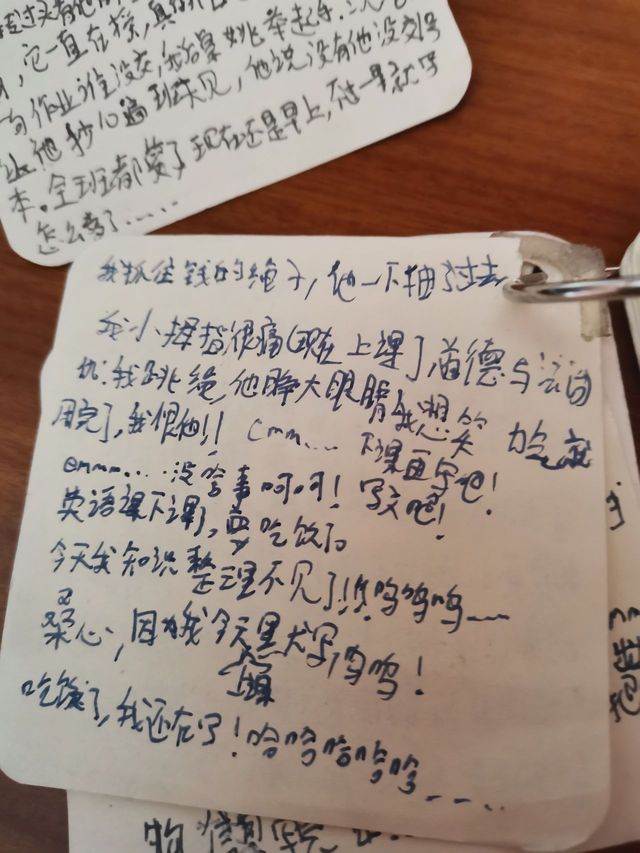 它一直在
有作业谁没交,我给某姚举起手
让他抄10遍 他说没有他没交
本。全班都蒙了现在还是早上,
怎么写了……
我抓住钱的绳子,他一下抽了过去
我小拇指很痛(现在上课了,道德与法治
我跳绳,他睁大眼睛我想笑
用完了,我恨他!! Cmm... 下课再写吧!
emmm....没啥事呵呵! 写文吧!
英语课下课了,要吃饭了
今天我知识整理不见了!!呜呜呜……
桑心,因为我今天上课黑犬写,呜呜!
吃饭了,我还在写!哈哈哈哈哈……